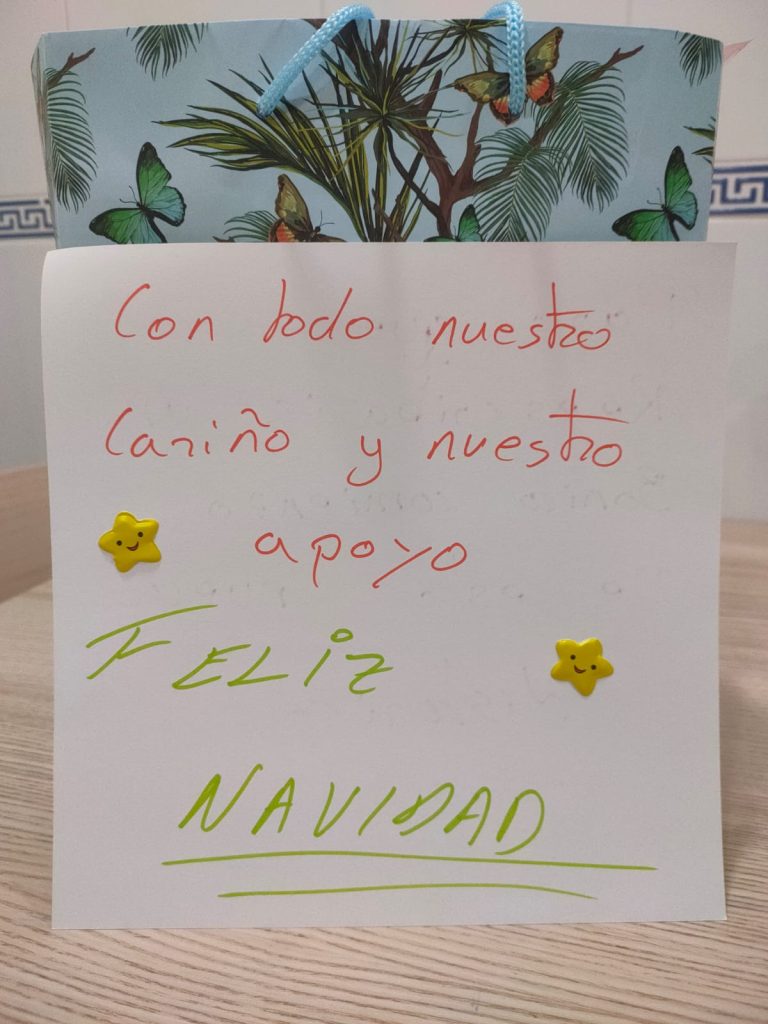 Con todo nuestro
Cariño y nuestro
apoyo
FELiZ
NAVIDAD